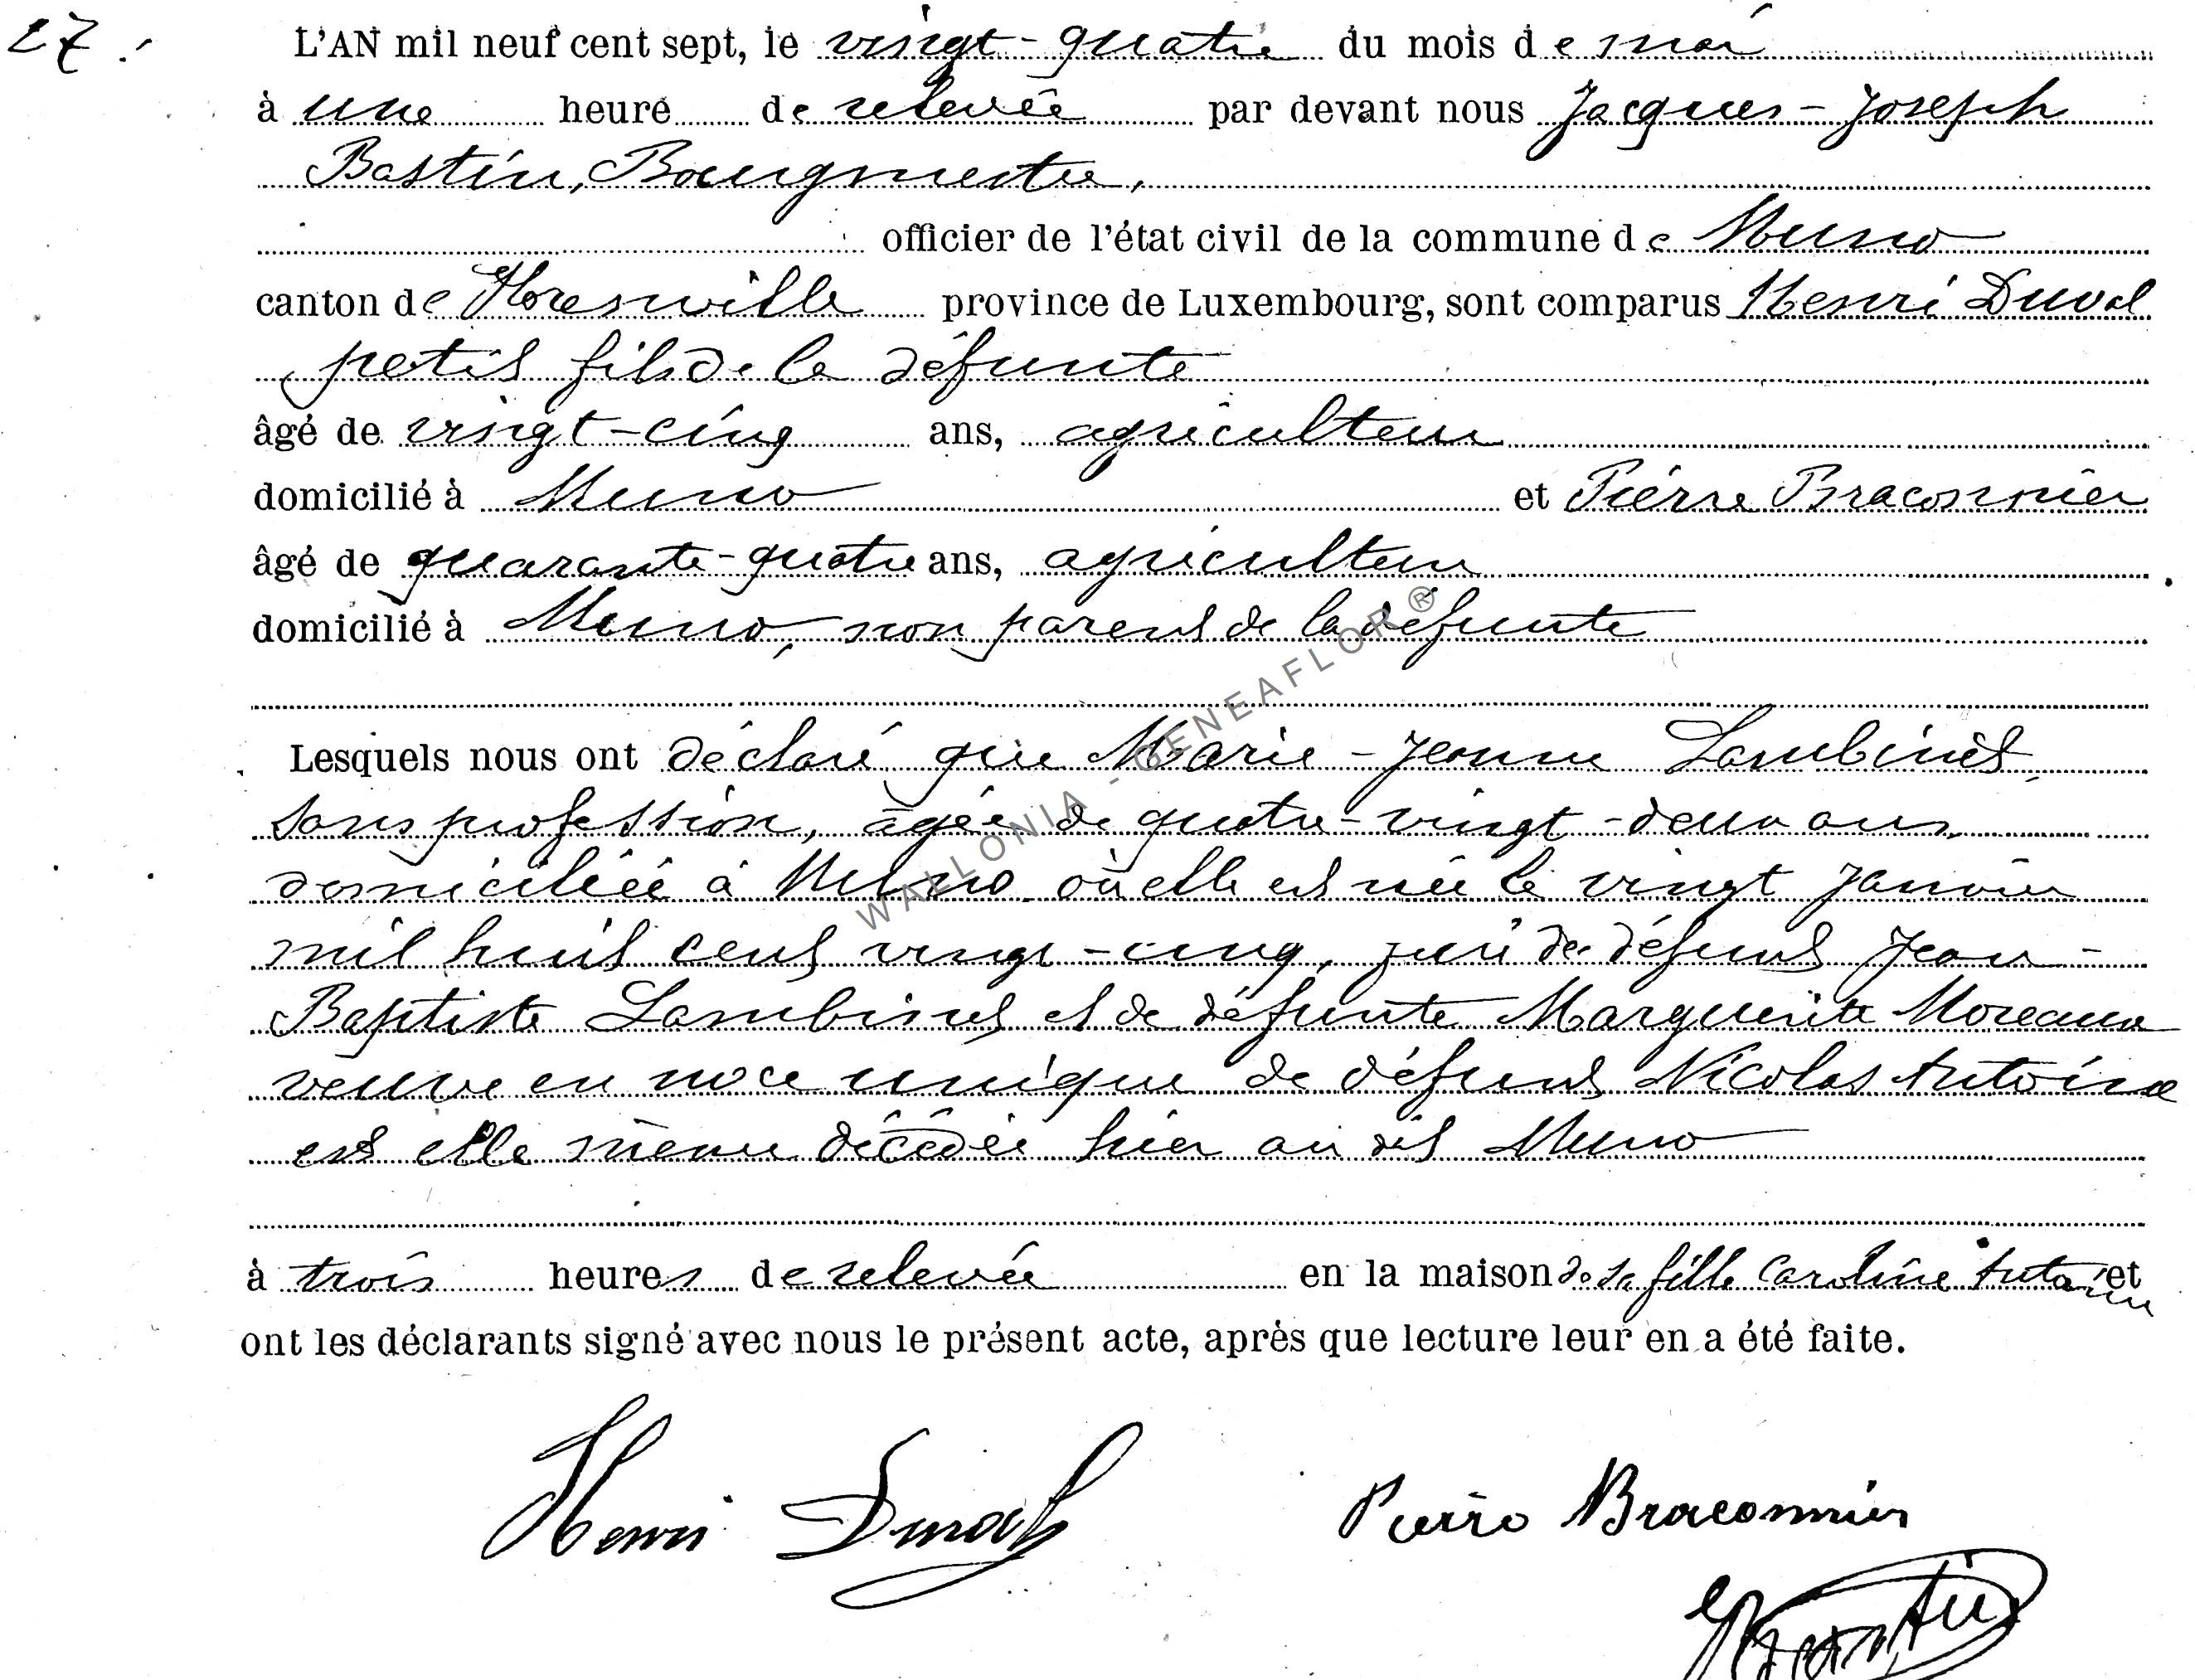 27.
L'AN mil neuf cent sept, le vingt-quatre du mois de mai
à une heure de relevée par devant nous Jacques-Joseph
Bastin, Bourgmestre,
officier de l'état civil de la commune de Muno
canton de Florenville province de Luxembourg, sont comparus Henri Duval
petit fils de la défunte
âgé de vingt-cinq ans, agriculteur
domicilié à Muno et Pierre Braconnier
âgé de quarante-quatre ans, agriculteur
domicilié à Muno, non parent de la défunte
Lesquels nous ont déclaré que Marie-Jeanne Lambinet,
sans profession, âgée de quatre-vingt-deux ans
domiciliée à Muno où elle est née le vingt Janvier
mil huit cent vingt-cinq, de défunt Jean-
Baptiste Lambinet et de défunte Marguerite Moreaux
veuve en noce unique de défunt Nicolas Antoine
est elle même décédée hier au dit Muno
à trois heures de relevée en la maison de sa fille Caroline Antoine et
ont les déclarants signé avec nous le présent acte, après que lecture leur en a été faite.
Henri Duval Pierre Braconnier
Bastin
WALLONIA - GENEAFLOR ®